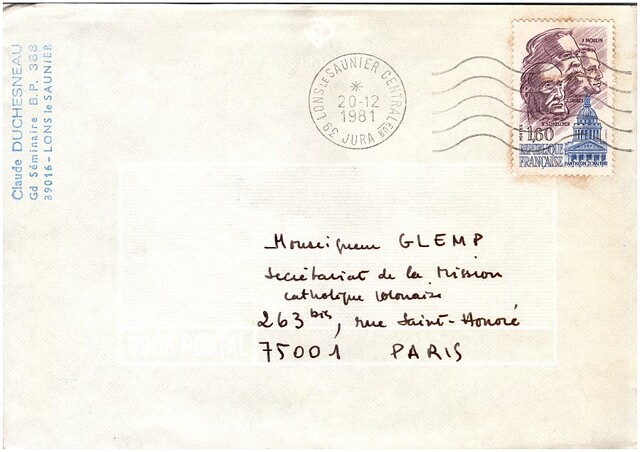 Claude DUCHESNEAU
Gd Séminaire B.P. 388
39016 - LONS le SAUNIER
39 LONS LE SAUNIER CENTRAL
20-12
1981
JURA
J. MOULIN
J. JAURES
V. SCHOELCHER
1,60
REPUBLIQUE
FRANÇAISE
PANTHEON 21 MAI 1981
Monseigneur GLEMP
Secrétariat de la Mission
catholique Polonaise
263 bis, rue Saint-Honoré
75001 PARIS